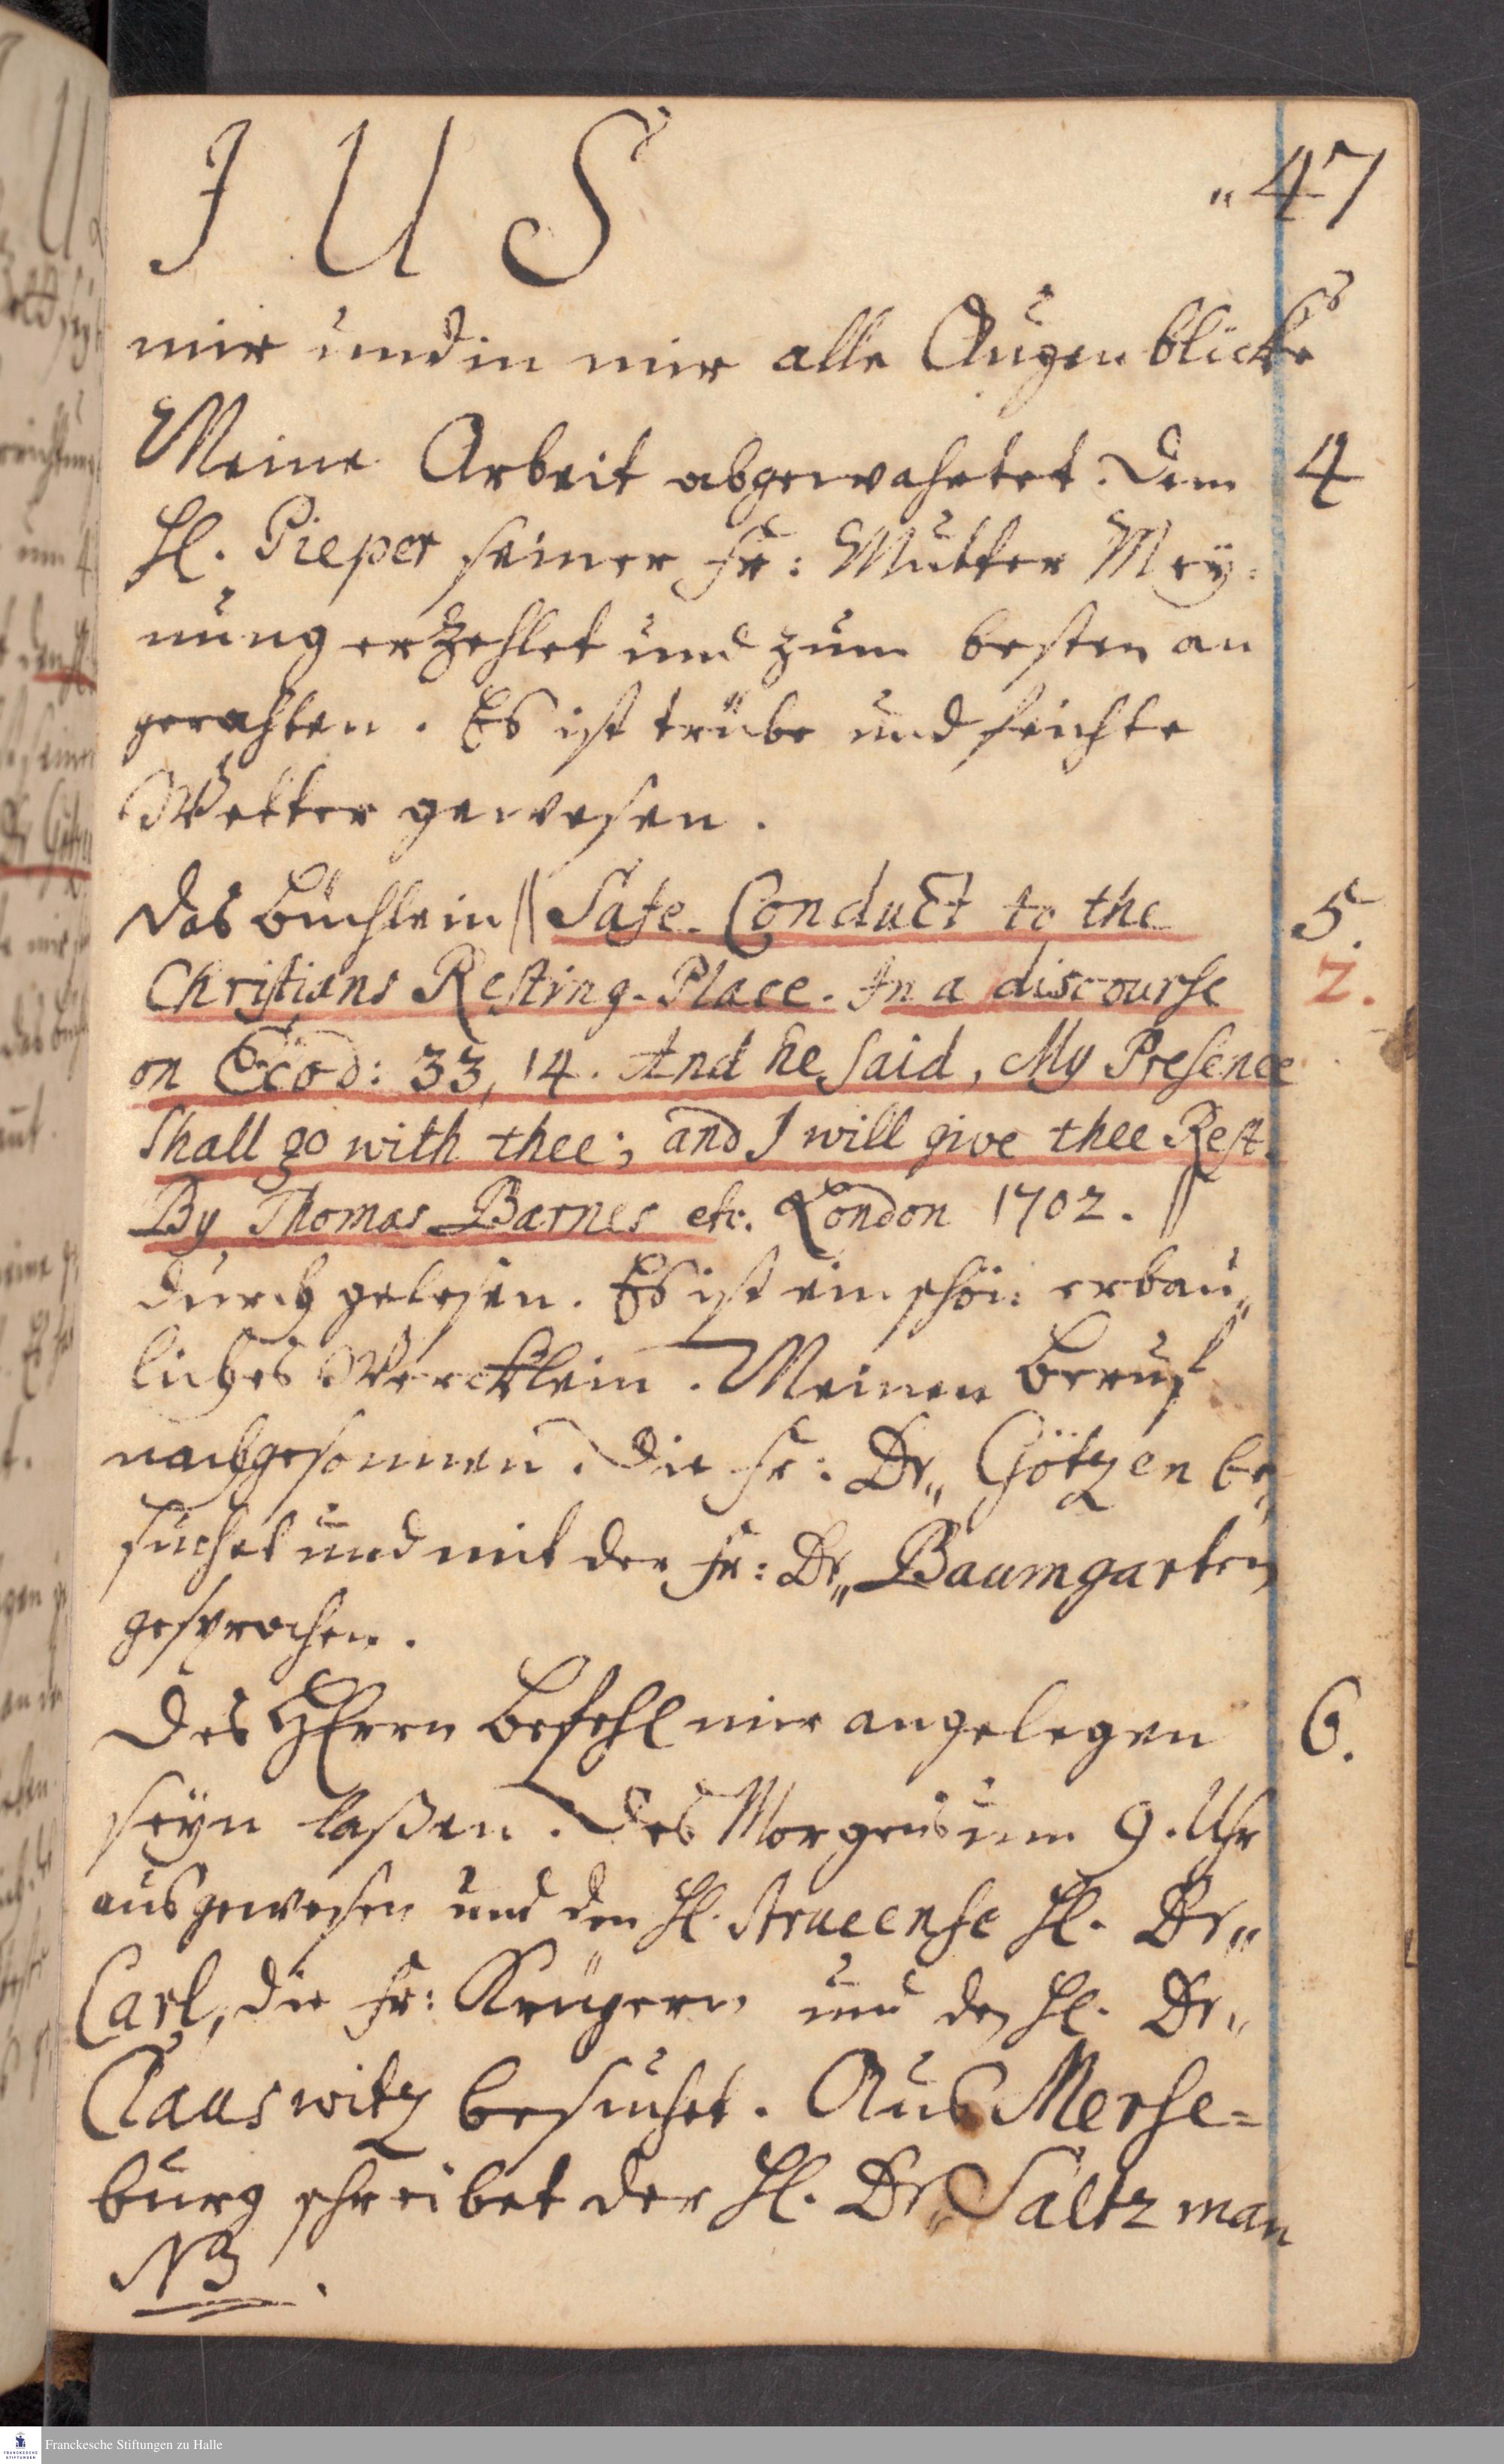 J U S „47
mir und in mir alle Augenblicke
Meine Arbeit abgewahrtet. Dem 4
Hl. Pieper seiner Fr: Mutter Mey=
nung erzehlet und zum besten an
gerahten. Es ist trübe und feichte
Wetter gewesen.
Das Büchlein || Safe-Conduct to the 5.
Christians Resting-Place. In a discourse 2.
on Exod: 33, 14. And he said, My Presence
shall go with thee; and I will give thee Rest.
By Thomas Barnes etc. London 1702. ||
durch gelesen. Es ist ein schön erbau„
liches Wercklein. Meinen Beruf
nachgesonnen. Die Fr: Dr„ Götzen be„
suchet und mit der Fr: Dr„ Baumgarten
gesprochen.
Des HErrn Befehl mir angelegen 6.
seyn laßen. Des Morgens um 9. Uhr
ausgewesen und den Hl. Struense Hl. Dr„
Carl, die Fr: Krügern und den Hl. Dr„
Clauswitz besuchet. Aus Merse=
burg schreibet der Hl. Dr„ Saltzman
NB.
Franckesche Stiftungen zu Halle